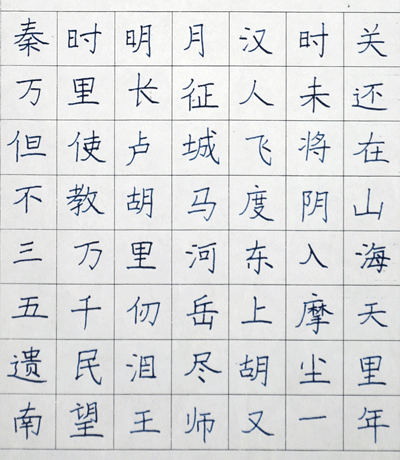 秦时明月汉时关
万里长征人未还
但使卢城飞将在
不教胡马度阴山
三万里河东入海
五千仞岳上摩天
遗民泪尽胡尘里
南望王师又一年